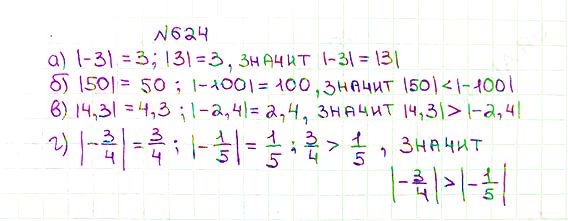 №624
а) |-3| = 3; |3| = 3, значит |-3| = |3|
б) |50| = 50; |-100| = 100, значит |50| < |-100|
в) |4,3| = 4,3; |-2,4| = 2,4, значит |4,3| > |-2,4|
г) |-3/4| = 3/4; |-1/5| = 1/5; 3/4 > 1/5, значит
|-3/4| > |-1/5|